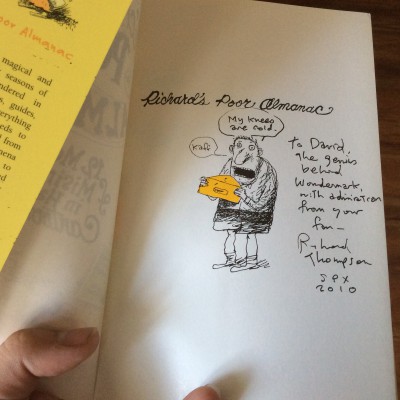 oor Almanac
magical and
seasons of
ndered in
, guides,
erything
eds to
d from
mena
to
nd
Richard's Poor Almanac
My knees
are cold.
Kaff
To David,
the genius
behind
Wondermark,
with admiration
from your
fan—
Richard
Thompson
SPX
2010